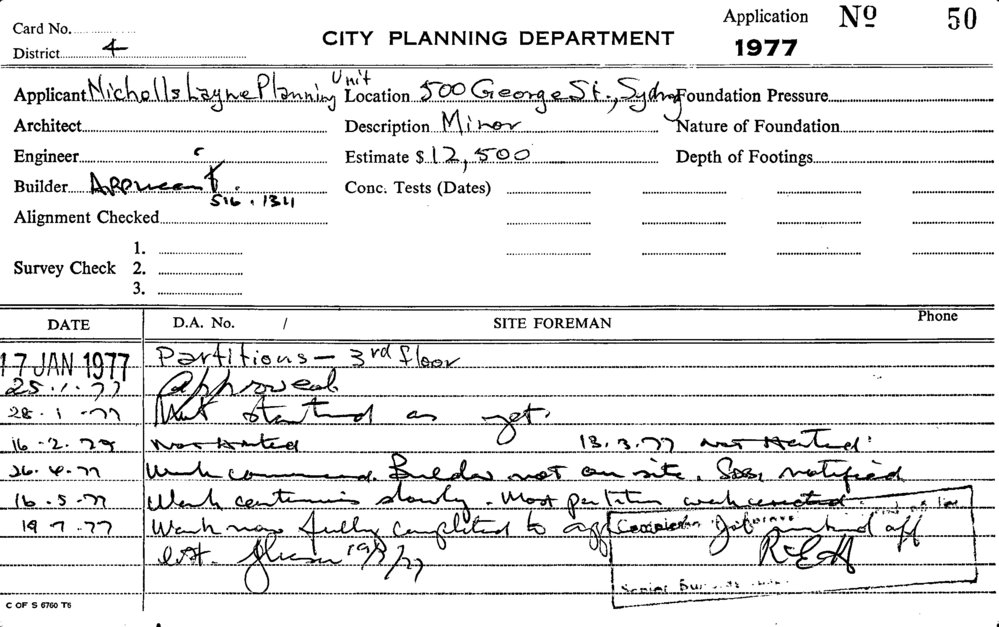 Card No.
District 4
CITY PLANNING DEPARTMENT
Application No 50
1977
Applicant Nicholls Layne Planning Unit
Location 500 George St., Sydney
Foundation Pressure
Architect
Description Minor
Nature of Foundation
Engineer
Estimate $12,500
Depth of Footings
Builder Applicant.
516.1311
Conc. Tests (Dates)
Alignment Checked
Survey Check
1.
2.
3.
DATE D.A. No. / SITE FOREMAN Phone
17 JAN 1977 Partitions - 3rd floor
25.1.77 Approved
28.1.77 Not started as yet.
16.2.77 Not started 18.3.77 not started.
26.4.77 Work commenced. Builder not on site. notified
16.5.77 Work continuing slowly. Most partition work erected.
19 7.77 Work now fully completed to Job marked off
19/7/77
Senior
C OF S 6760 T6